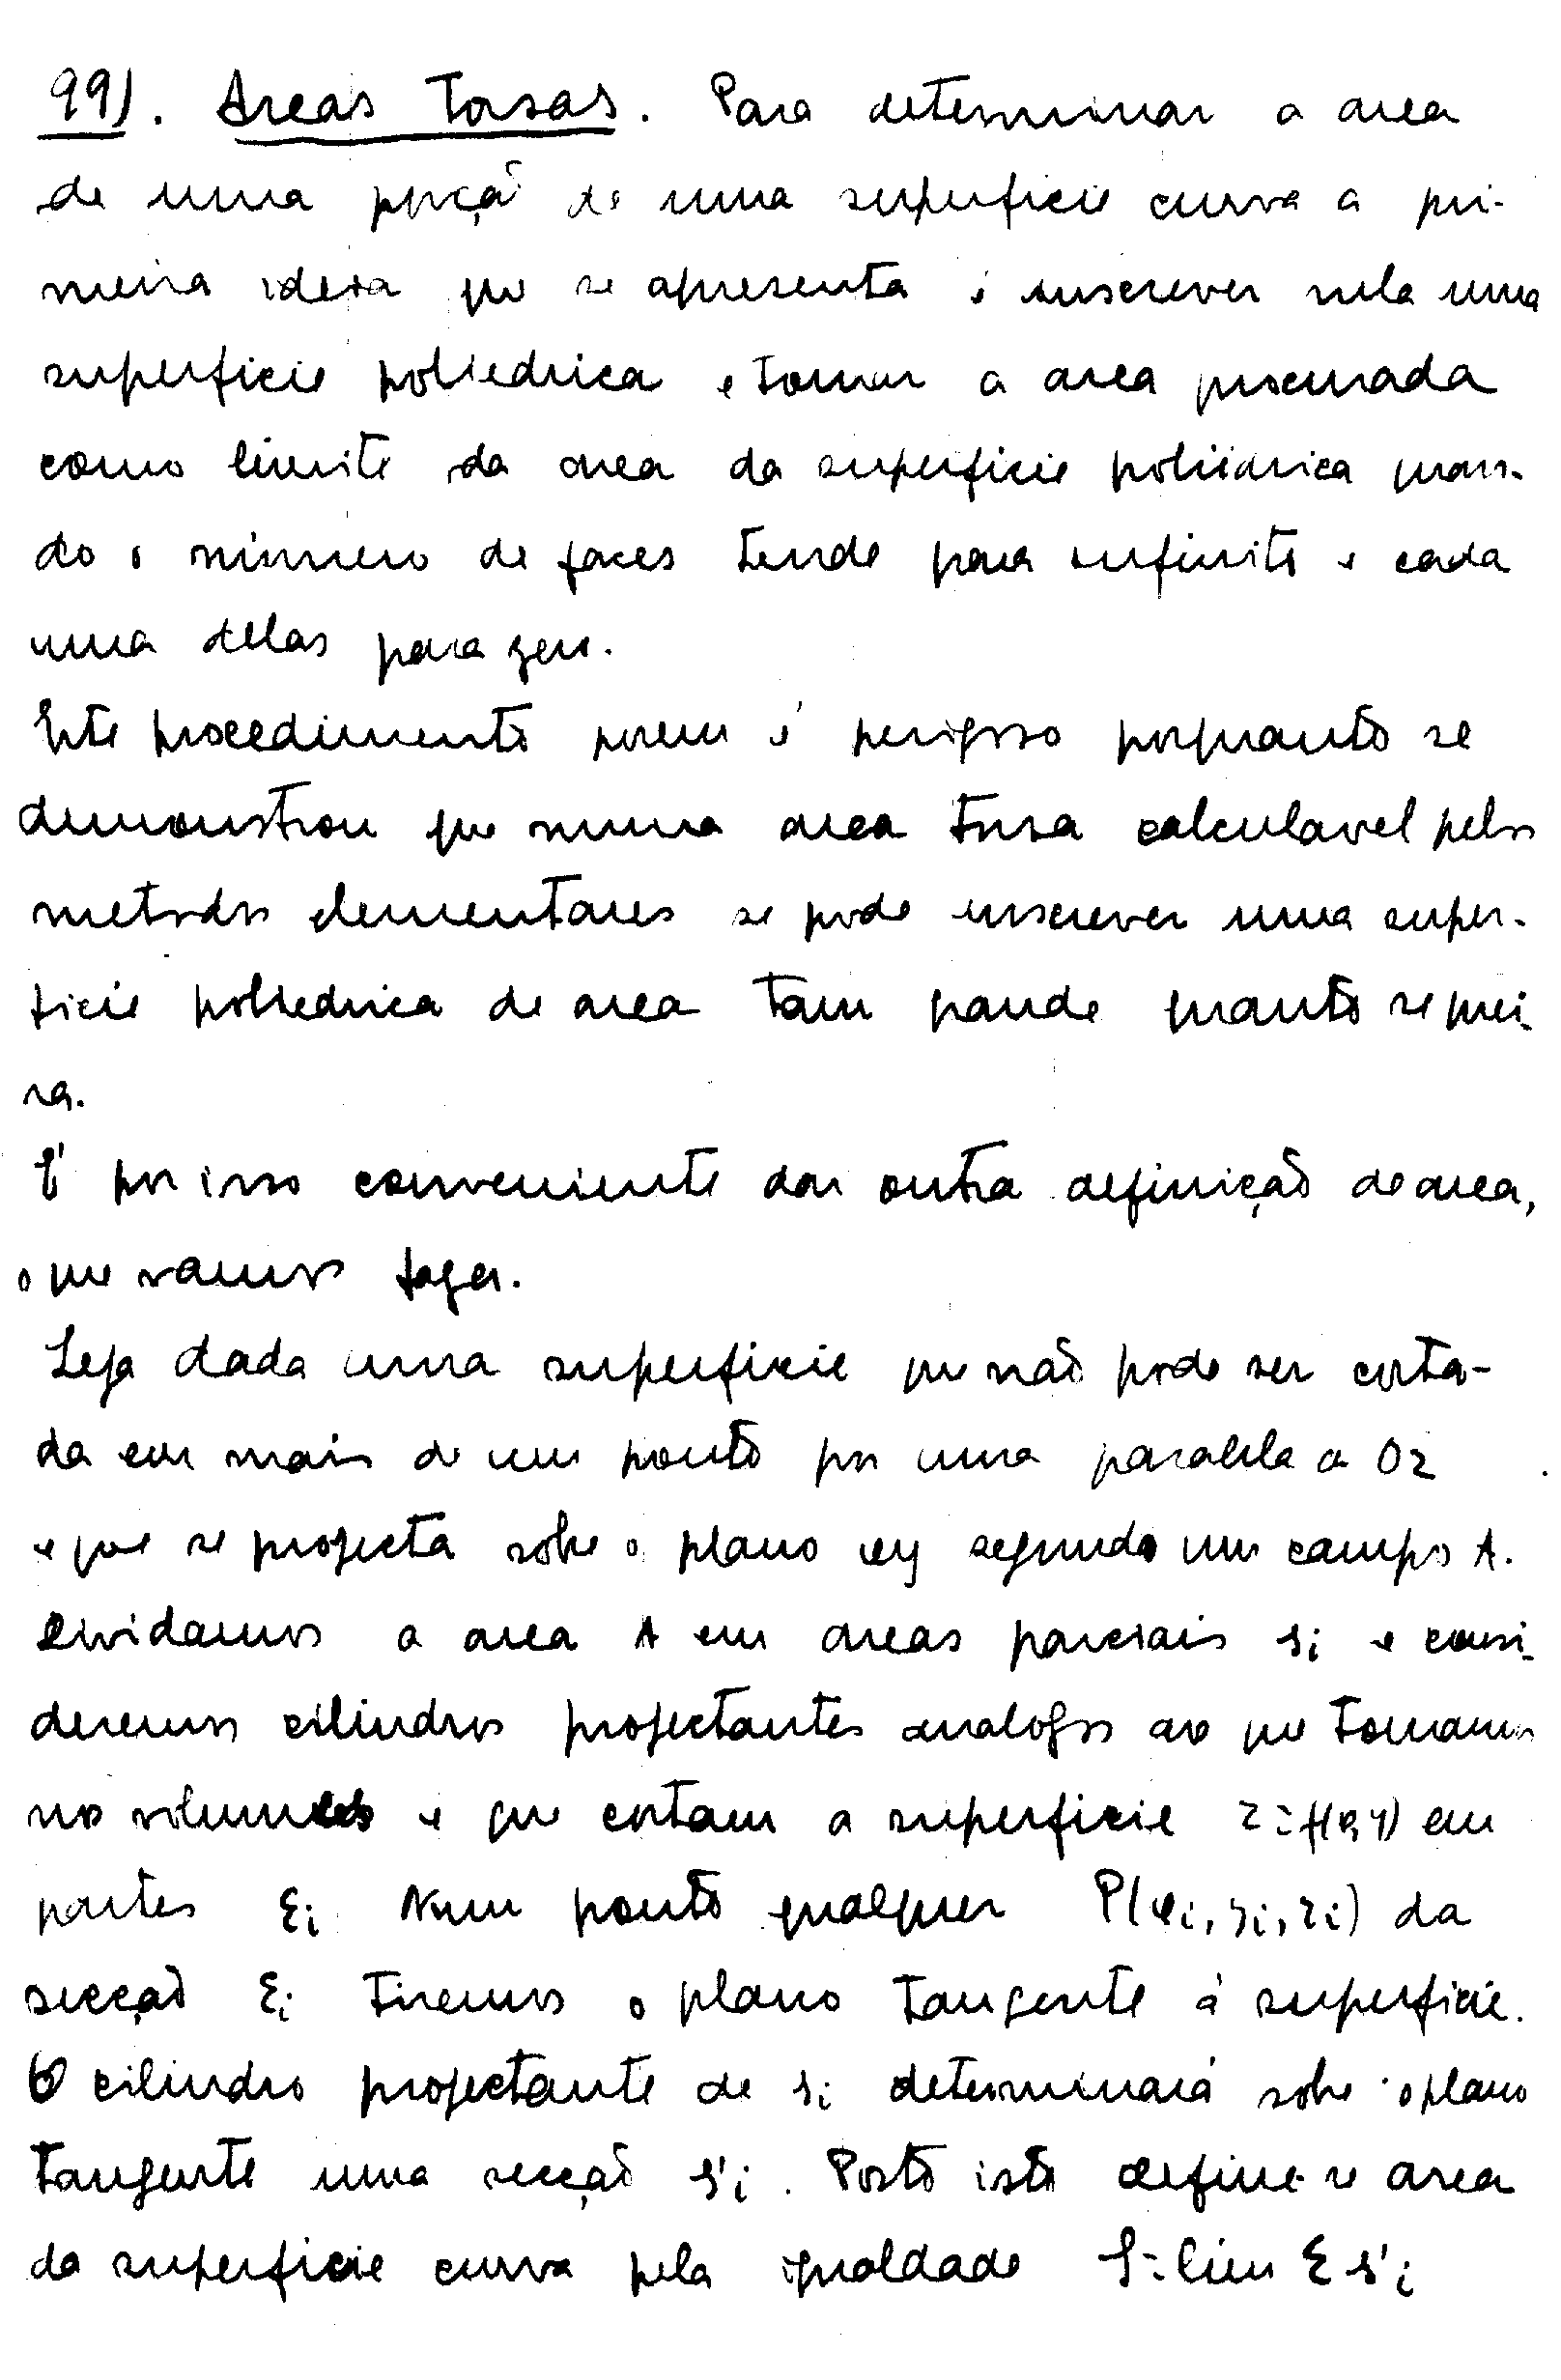 99). Areas torsas. Para determinar a area
de uma porçaõ de uma superficie curva a pri-
meira ideia que se apresenta é inscrever nela uma
superficie poliedrica e tomar a area procurada
como limite da area da superficie poliédrica quan-
do o número de faces tende para infinito e cada
uma delas para zero.
Este procedimento porem é perigoso porquanto se
demonstrou que numa area torsa calculavel pelos
metodos elementares se pode inscrever uma super-
ficie poliedrica de area tam grande quanto se quei-
ra.
É por isso conveniente dar outra definição de area,
o que vamos fazer.
Seja dada uma superficie que não pode ser corta-
da em mais de um ponto por uma paralela a Oz
e que se projecta sobre o plano xy segundo um campo A.
Dividamos a area A em areas parciais si e consi-
deremos cilindros projectantes analogos ao que tomamos
nos volumes e que cortam a superficie z=f(x,y) em
partes Σi Num ponto qualquer P(xi, yi, zi) da
secção Σi tiremos o plano tangente á superficie.
O cilindro projectante de si determinará sobre o plano
tangente uma secção s'i. Posto isto define-se area
da superficie curva pela igualdade S=lim Σ s'i